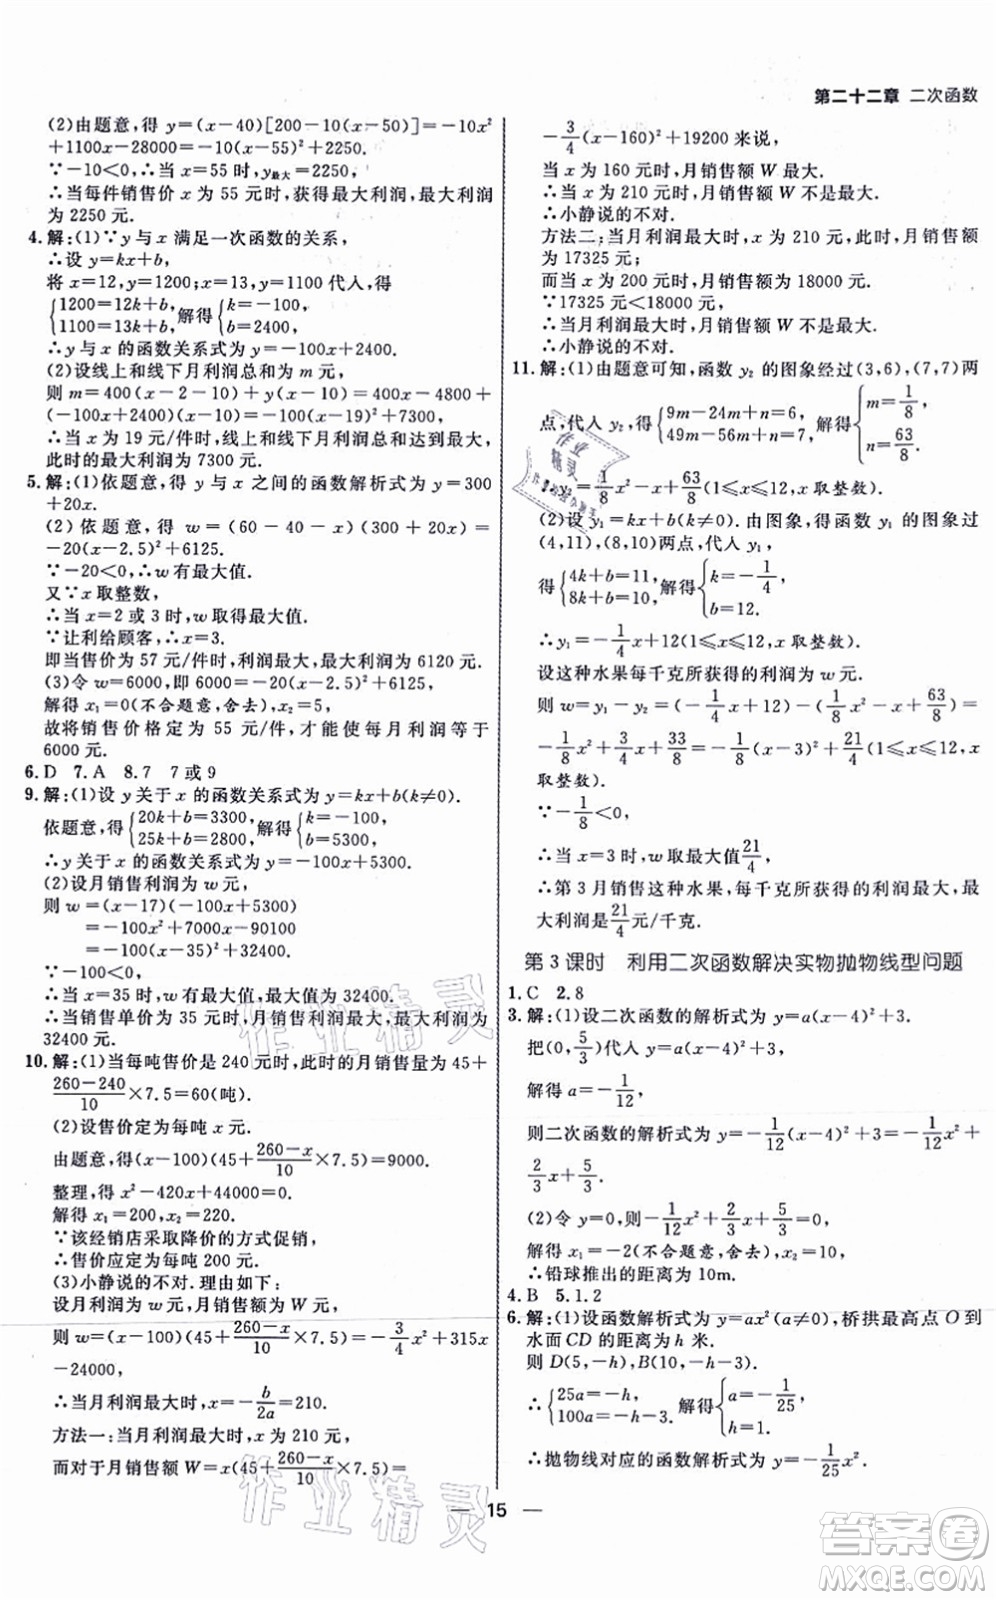 第二十二章 二次函数
(2)由题意,得 y=(x-40)[200-10(x-50)]=-10x²
+1100x-28000=-10(x-55)²+2250.
∵-10<0,∴当 x=55 时,y最大=2250.
∴当每件销售价为 55 元时,获得最大利润,最大利润
为 2250 元.
4.解:(1)∵y 与 x 满足一次函数的关系,
∴设 y=kx+b,
将 x=12,y=1200;x=13,y=1100 代人,得
{1200=12k+b, 1100=13k+b, 解得{k=-100, b=2400,
∴y 与 x 的函数关系式为 y=-100x+2400.
(2)设线上和线下月利润总和为 m 元,
则 m=400(x-2-10)+y(x-10)=400x-4800+
(-100x+2400)(x-10)=-100(x-19)²+7300,
∴当 x 为 19 元/件时,线上和线下月利润总和达到最大,
此时的最大利润为 7300 元.
5.解:(1)依题意,得 y 与 x 之间的函数解析式为 y=300
+20x.
(2)依题意,得 w=(60-40-x)(300+20x)=
-20(x-2.5)²+6125.
∵-20<0,∴w 有最大值.
又∵x 取整数,
∴当 x=2 或 3 时,w 取得最大值.
∵让利给顾客,∴x=3.
即当售价为 57 元/件时,利润最大,最大利润为 6120 元.
(3)令 w=6000,即 6000=-20(x-2.5)²+6125,
解得 x₁=0(不合题意,舍去),x₂=5.
故将销售价格定为 55 元/件,才能使每月利润等于
6000 元.
6.D 7.A 8.7 7 或 9
9.解:(1)设 y 关于 x 的函数关系式为 y=kx+b(k≠0).
依题意,得{20k+b=3300, 25k+b=2800, 解得{k=-100, b=5300,
∴y 关于 x 的函数关系式为 y=-100x+5300.
(2)设月销售利润为 w 元,
则 w=(x-17)(-100x+5300)
=-100x²+7000x-90100
=-100(x-35)²+32400.
∴当 x=35 时,w 最大,最大值为 32400.
∴当销售单价为 35 元时,月销售利润最大,最大利润为
32400 元.
10.解:(1)当每吨售价是 240 元时,此时的月销售量为 45+
(260-240)/10×7.5=60(吨).
(2)设售价定为每吨 x 元.
由题意,得(x-100)(45+(260-x)/10×7.5)=9000.
整理,得 x²-420x+44000=0.
解得 x₁=200,x₂=220.
∵该经销店采取降价的方式促销,
∴售价应定为每吨 200 元.
(3)小静说的不对.理由如下:
设月利润为 w 元,月销售额为 W 元,
则 w=(x-100)(45+(260-x)/10×7.5)=-3/4x²+315x
-24000,
∴当月利润最大时,x=-b/2a=210,
方法一:当月利润最大时,x 为 210 元,
而对于月销售额 W=x(45+(260-x)/10×7.5)=
-3/4(x-160)²+19200 来说,
当 x 为 160 元时,月销售额 W 最大.
∴当 x 为 210 元时,月销售额 W 不是最大.
∴小静说的不对.
方法二:当月利润最大时,x 为 210 元,此时,月销售额
为 17325 元;
而当 x 为 200 元时,月销售额为 18000 元.
∵17325 元<18000 元,
∴当月利润最大时,月销售额 W 不是最大.
∴小静说的不对.
11.解:(1)由题意可知,函数 y₂ 的图象经过(3,6),(7,7)两
点,代人 y₂,得{9m-24m+n=6, 49m-56m+n=7, 解得{m=1/8, n=63/8,
∴y₂=1/8x²-x+63/8(1≤x≤12,x 取整数).
(2)设 y₁=kx+b(k≠0).由图象,得函数 y₁ 的图象过
(4,11),(8,10)两点,代人 y₁,
得{4k+b=11, 8k+b=10, 解得{k=-1/4, b=12.
∴y₁=-1/4x+12(1≤x≤12,x 取整数).
设这种水果每千克所获得的利润为 w 元.
则 w=y₁-y₂=(-1/4x+12)-(1/8x²-x+63/8)=
-1/8x²+3/4x+33/8=-1/8(x-3)²+21/4(1≤x≤12,x
取整数).
∵-1/8<0,
∴当 x=3 时,w 取最大值21/4,
∴第 3 月销售这种水果,每千克所获得的利润最大,最
大利润是21/4元/千克.
第 3 课时 利用二次函数解决实物抛物线型问题
1.C 2.8
3.解:(1)设二次函数的解析式为 y=a(x-4)²+3.
把(0,5/3)代人 y=a(x-4)²+3,
解得 a=-1/12,
则二次函数的解析式为 y=-1/12(x-4)²+3=-1/12x²+
2/3x+5/3.
(2)令 y=0,得-1/12x²+2/3x+5/3=0,
解得 x₁=-2(不合题意,舍去),x₂=10,
∴铅球推出的距离为 10m.
4.B 5.1.2
6.解:(1)设函数解析式为 y=ax²(a≠0),桥拱最高点 O 到
水面 CD 的距离为 h 米.
则 D(5,-h),B(10,-h-3).
∴{25a=-h, 100a=-h-3. 解得{a=-1/25, h=1.
∴抛物线对应的函数解析式为 y=-1/25x².
— 15 —
作业精灵
作业精灵
作业精灵
答案圈
MXQE.COM